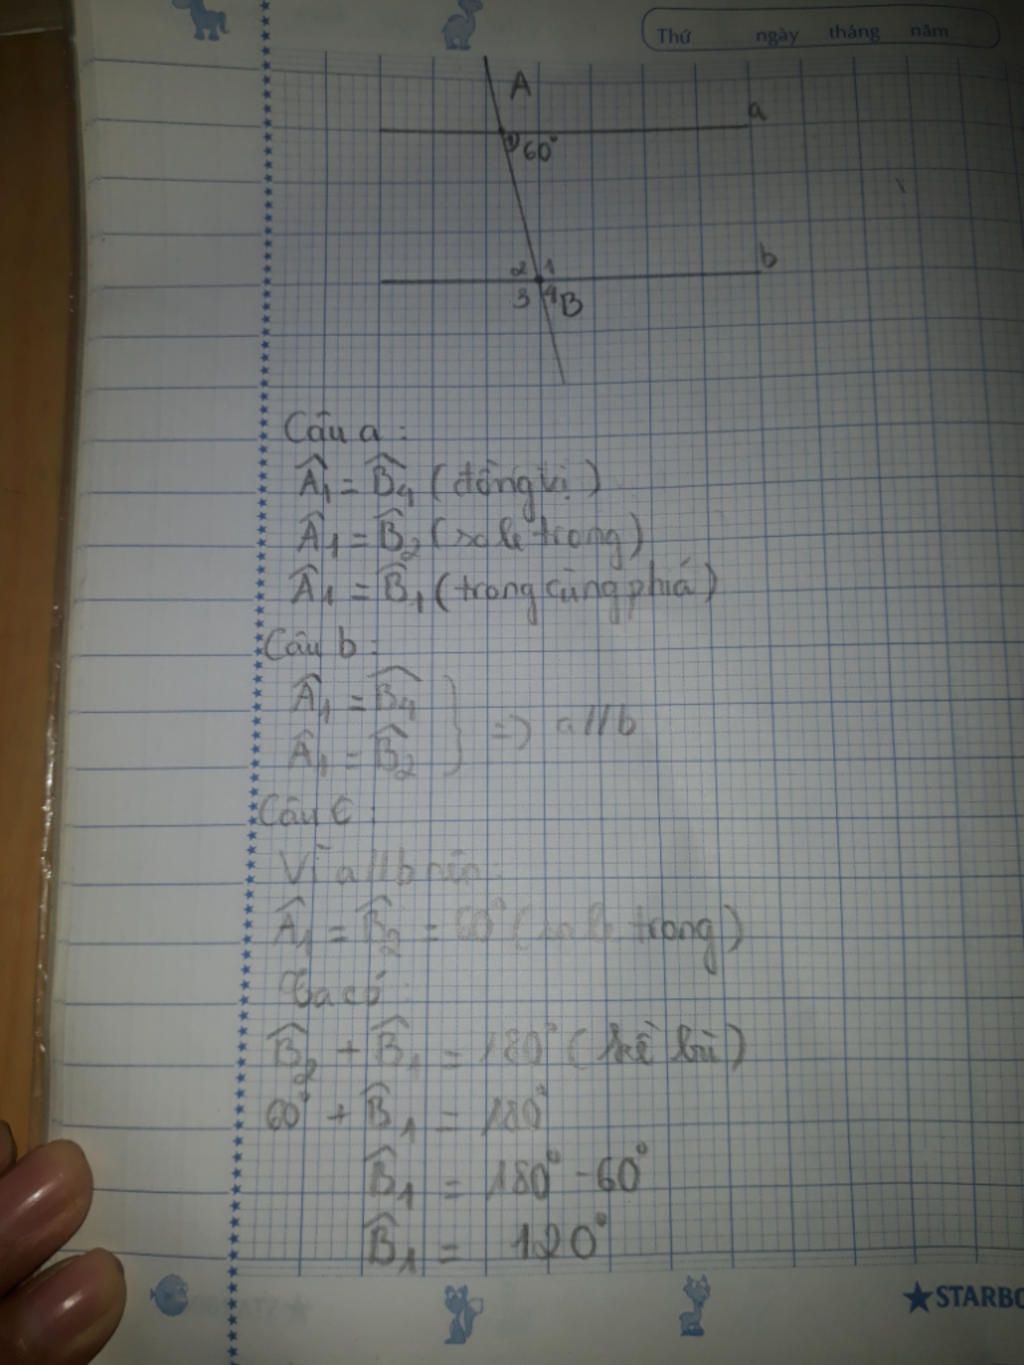 Thứ ngày tháng năm
A
a
1 60°
b
2 1
3 4 B
Câu a :
Â₁ = B̂₄ ( đồng vị )
Â₁ = B̂₂ ( so le trong )
Â₁ = B̂₁ ( trong cùng phiá )
Câu b :
Â₁ = B̂₄
Â₁ = B̂₂ } => a // b
Câu c :
Vì a // b nên :
Â₁ = B̂₂ = 60° ( so le trong )
Ta có :
B̂₂ + B̂₁ = 180° ( kề bù )
60° + B̂₁ = 180°
B̂₁ = 180° - 60°
B̂₁ = 120°
STARBO